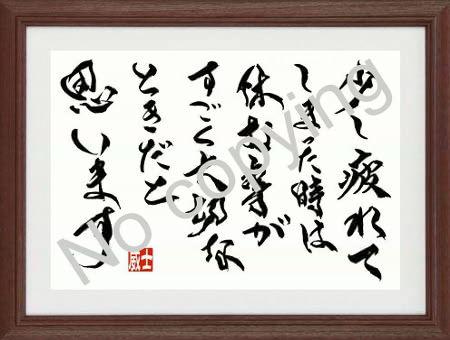 疲れて
しまった時は
休む事が
すごく大切な
ときだと
思います
No copying